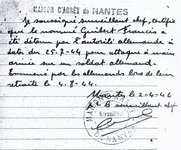 MAISON D'ARRÊT de NANTES
Je soussigné surveillant chef, certifie
que le nommé Guibert Francis a
été détenu par l'autorité allemande à
dater du 25.7.44 pour attaque à main
armée sur un soldat allemand.
Emmené par les allemands lors de leur
retraite le 4-8-44.
Nantes le 2-4-46
Le surveillant chef
NANTES